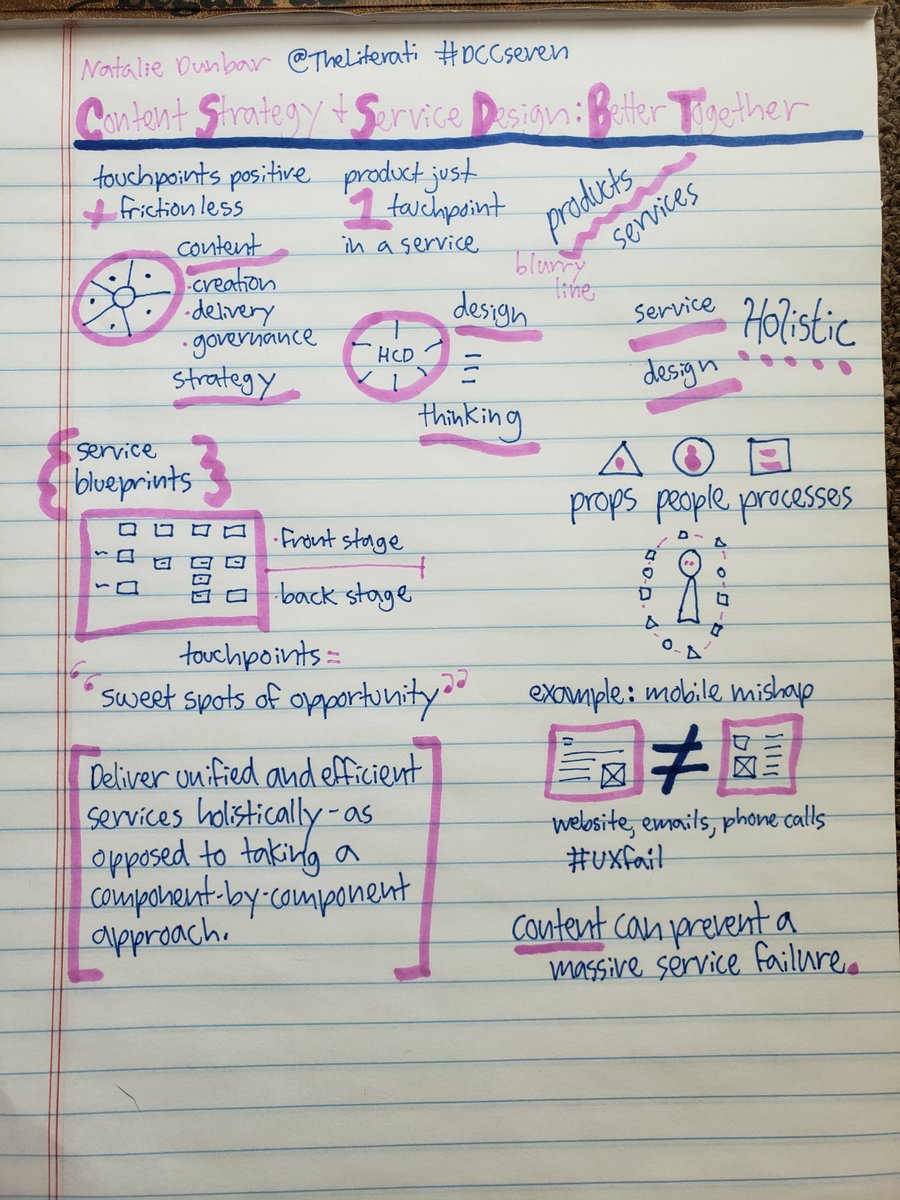 Natalie Dunbar @TheLiterati #DCCseven
Content Strategy + Service Design: Better Together
touchpoints positive
+ frictionless
product just
1 touchpoint
in a service
products
services
blurry
line
content
·creation
·delivery
·governance
strategy
HCD
design
thinking
service
design
Holistic
{service
blueprints}
·front stage
·back stage
props people processes
touchpoints=
"sweet spots of opportunity"
example: mobile mishap
≠
website, emails, phone calls
#UXfail
[Deliver unified and efficient
services holistically-as
opposed to taking a
component-by-component
approach.]
content can prevent a
massive service failure.